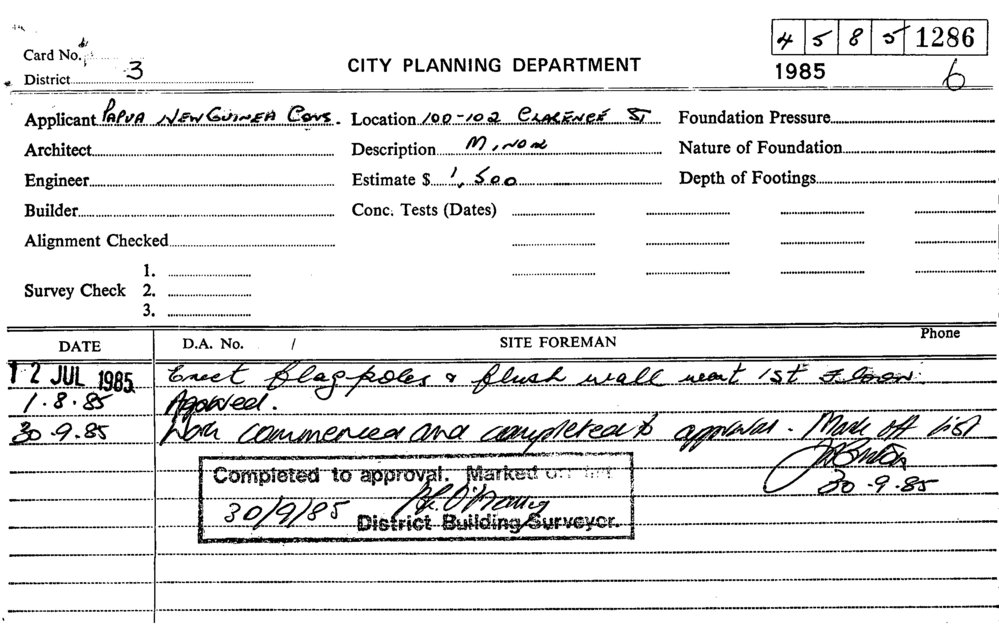 4 5 8 5 1286
Card No.
CITY PLANNING DEPARTMENT
District 3
1985 6
Applicant PAPUA NEW GUINEA CONS. Location 100-102 CLARENCE ST Foundation Pressure
Architect Description MINOR Nature of Foundation
Engineer Estimate $ 1,500 Depth of Footings
Builder Conc. Tests (Dates)
Alignment Checked
1.
Survey Check 2.
3.
DATE D.A. No. / SITE FOREMAN Phone
12 JUL 1985 Erect flagpoles & flush wall 1st Floor.
1.8.85 Approved.
30.9.85 Work commenced and completed to approval. Mark off list
30.9.85
Completed to approval. Marked off list
30/9/85
District Building Surveyor.